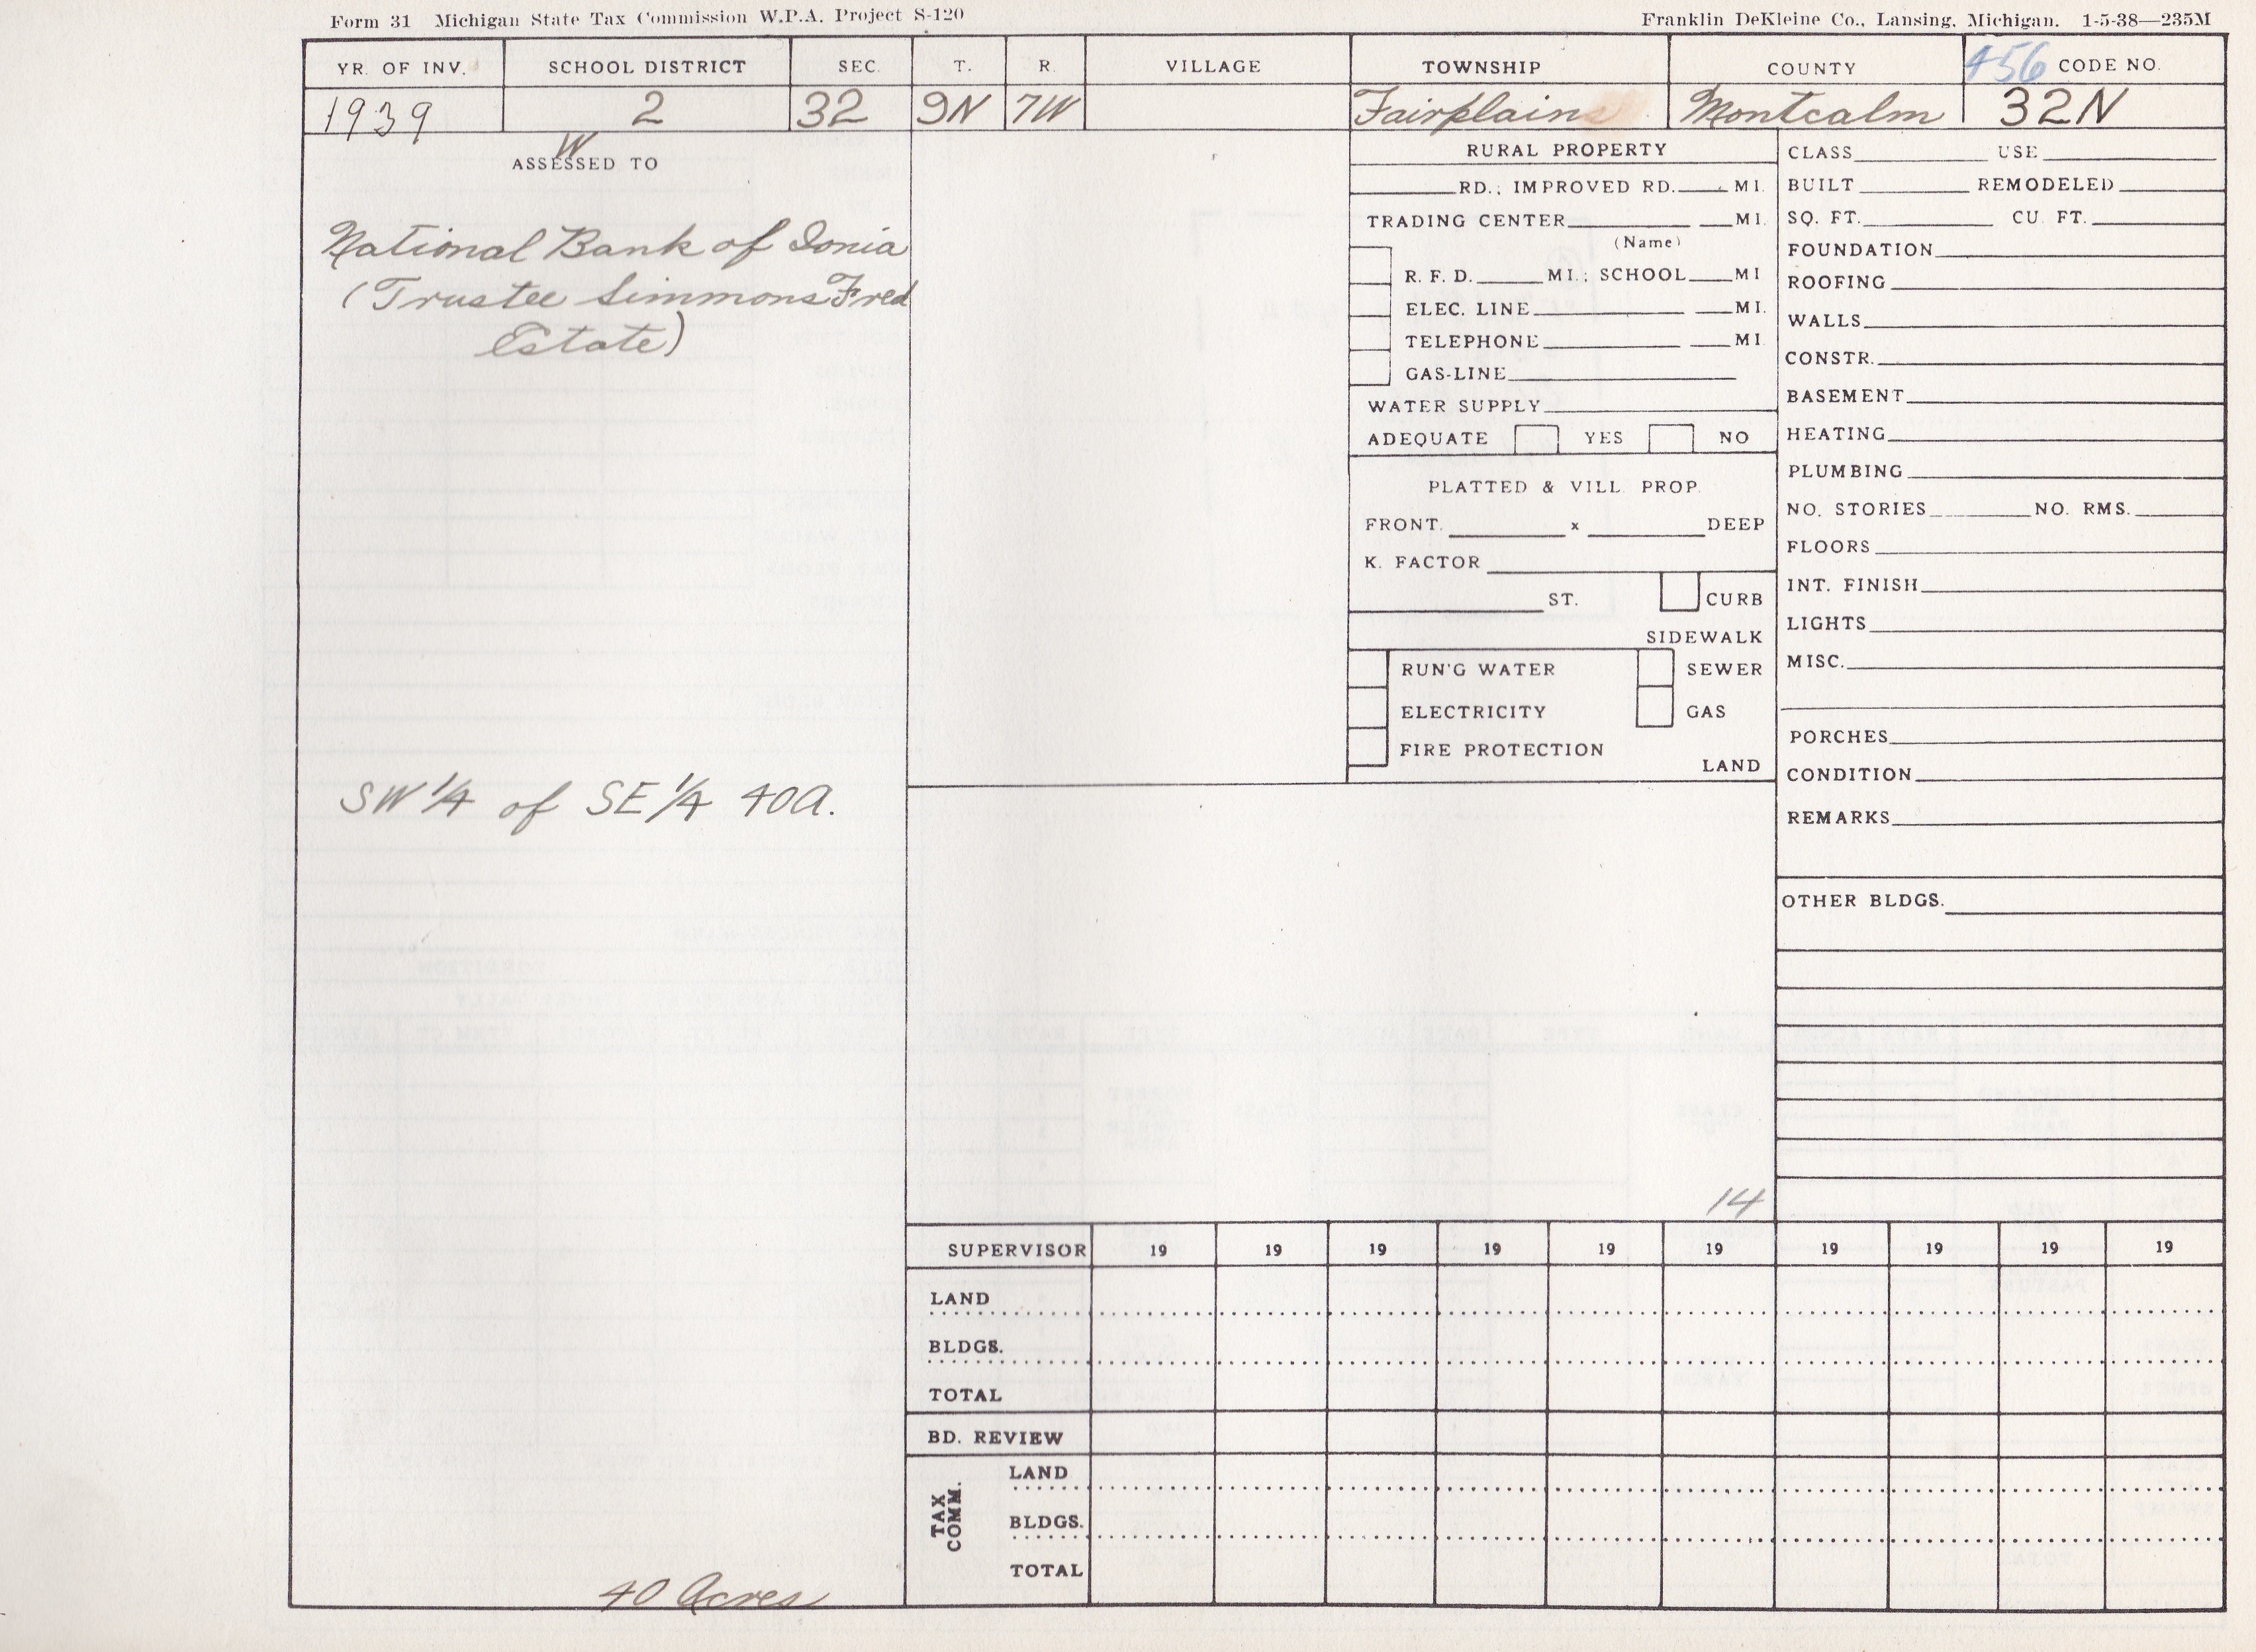 Form 31 Michigan State Tax Commission W.P.A. Project S-120
Franklin DeKleine Co., Lansing, Michigan. 1-5-38—235M
YR. OF INV. SCHOOL DISTRICT SEC. T. R. VILLAGE TOWNSHIP COUNTY 456 CODE NO.
1939 2 32 9N 7W Fairplains Montcalm 32N
W
ASSESSED TO
National Bank of Ionia
(Trustee Simmons Fred
Estate)
SW 1/4 of SE 1/4 40A.
40 Acres
RURAL PROPERTY
RD.; IMPROVED RD. MI.
TRADING CENTER MI.
(Name)
R. F. D. MI.; SCHOOL MI
ELEC. LINE MI.
TELEPHONE MI
GAS-LINE
WATER SUPPLY
ADEQUATE YES NO
PLATTED & VILL. PROP.
FRONT. x DEEP
K. FACTOR
ST. CURB
SIDEWALK
RUN'G WATER SEWER
ELECTRICITY GAS
FIRE PROTECTION
LAND
CLASS USE
BUILT REMODELED
SQ. FT. CU. FT.
FOUNDATION
ROOFING
WALLS
CONSTR.
BASEMENT
HEATING
PLUMBING
NO. STORIES NO. RMS.
FLOORS
INT. FINISH
LIGHTS
MISC.
PORCHES
CONDITION
REMARKS
OTHER BLDGS.
14
SUPERVISOR 19 19 19 19 19 19 19 19 19 19
LAND
BLDGS.
TOTAL
BD. REVIEW
TAX COMM.
LAND
BLDGS.
TOTAL